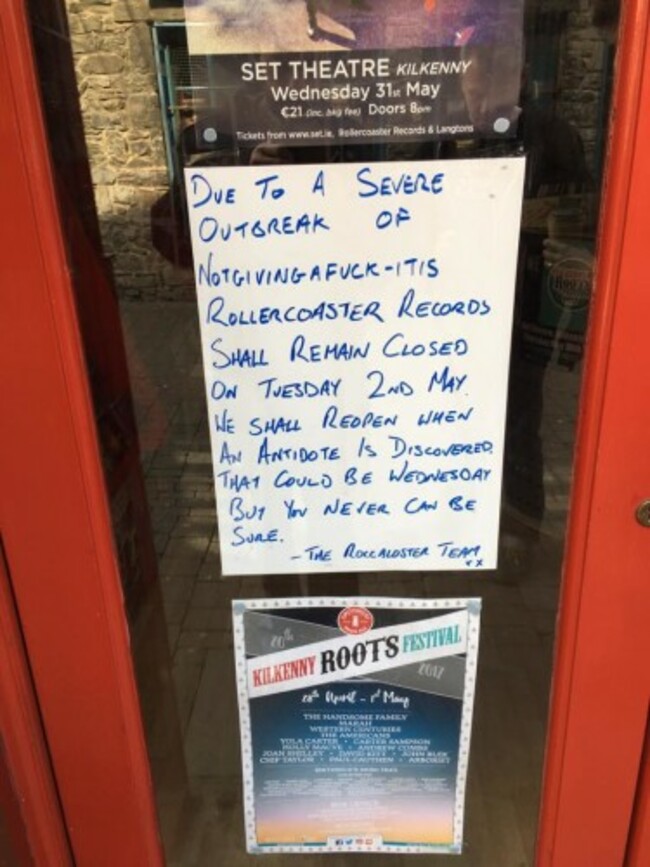 SET THEATRE KILKENNY
Wednesday 31st May
€21 (inc. bkg fee) Doors 8pm
Tickets from www.set.ie, Rollercoaster Records & Langtons
DUE TO A SEVERE
OUTBREAK OF
NOTGIVINGAFUCK-ITIS
ROLLERCOASTER RECORDS
SHALL REMAIN CLOSED
ON TUESDAY 2ND MAY.
WE SHALL REOPEN WHEN
AN ANTIDOTE IS DISCOVERED.
THAT COULD BE WEDNESDAY
BUT YOU NEVER CAN BE
SURE.
- THE ROLLCALOSTER TEAM
xx
20th
KILKENNY ROOTS FESTIVAL
2017
28th April - 1st May
THE HANDSOME FAMILY
MARAH
WESTERN CENTURIES
THE AMERICANS
YOLA CARTER • CARTER SAMPSON
HOLLY MACVE • ANDREW COMBS
JOAN SHELLEY • DAVID KITT • JOHN BLEK
CHIP TAYLOR • PAUL CAUTHEN • ARBORIST